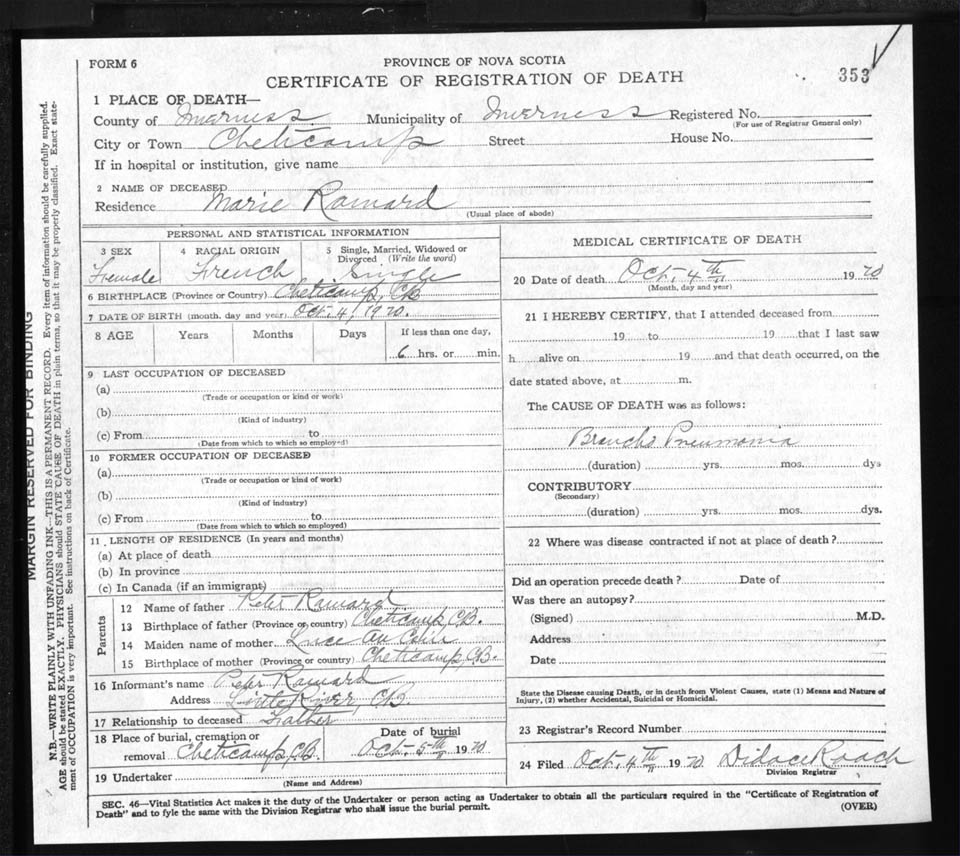 FORM 6
PROVINCE OF NOVA SCOTIA
CERTIFICATE OF REGISTRATION OF DEATH
353
1 PLACE OF DEATH—
County of Inverness Municipality of Inverness Registered No.
(For use of Registrar General only)
City or Town Cheticamp Street House No.
If in hospital or institution, give name
2 NAME OF DECEASED
Residence Marie Ramard
(Usual place of abode)
PERSONAL AND STATISTICAL INFORMATION
3 SEX 4 RACIAL ORIGIN 5 Single, Married, Widowed or Divorced (Write the word)
Female French Single
6 BIRTHPLACE (Province or Country) Cheticamp, CB
7 DATE OF BIRTH (month, day and year) Oct. 4, 1920.
8 AGE Years Months Days If less than one day,
6 hrs. or min.
9 LAST OCCUPATION OF DECEASED
(a)
(Trade or occupation or kind or work)
(b)
(Kind of industry)
(c) From to
(Date from which to which so employed)
10 FORMER OCCUPATION OF DECEASED
(a)
(Trade or occupation or kind of work)
(b)
(Kind of industry)
(c) From to
(Date from which to which so employed)
11 LENGTH OF RESIDENCE (In years and months)
(a) At place of death
(b) In province
(c) In Canada (if an immigrant)
Parents
12 Name of father Peter Ramard
13 Birthplace of father (Province or country) Cheticamp, C.B.
14 Maiden name of mother Luce Au Coin
15 Birthplace of mother (Province or country) Cheticamp, C.B.
16 Informant's name Peter Ramard
Address Little River, C.B.
17 Relationship to deceased Father
18 Place of burial, cremation or removal Cheticamp, C.B. Date of burial Oct. 5th 1920
19 Undertaker
(Name and Address)
MEDICAL CERTIFICATE OF DEATH
20 Date of death Oct. 4th 1920
(Month, day and year)
21 I HEREBY CERTIFY, that I attended deceased from
19 to 19 that I last saw
h alive on 19 and that death occurred, on the
date stated above, at m.
The CAUSE OF DEATH was as follows:
Broncho Pneumonia
(duration) yrs. mos. dys
CONTRIBUTORY
(Secondary)
(duration) yrs. mos. dys.
22 Where was disease contracted if not at place of death?
Did an operation precede death? Date of
Was there an autopsy?
(Signed) M.D.
Address
Date
State the Disease causing Death, or in death from Violent Causes, state (1) Means and Nature of
Injury, (2) whether Accidental, Suicidal or Homicidal.
23 Registrar's Record Number
24 Filed Oct. 4th 1920 Didace Roach
Division Registrar
SEC. 46—Vital Statistics Act makes it the duty of the Undertaker or person acting as Undertaker to obtain all the particulars required in the "Certificate of Registration of
Death" and to fyle the same with the Division Registrar who shall issue the burial permit. (OVER)
MARGIN RESERVED FOR BINDING
N.B.—WRITE PLAINLY WITH UNFADING INK—THIS IS A PERMANENT RECORD. Every item of information should be carefully supplied.
AGE should be stated EXACTLY. PHYSICIANS should STATE CAUSE OF DEATH in plain terms, so that it may be properly classified. Exact state-
ment of OCCUPATION is very important. See instructions on back of Certificate.